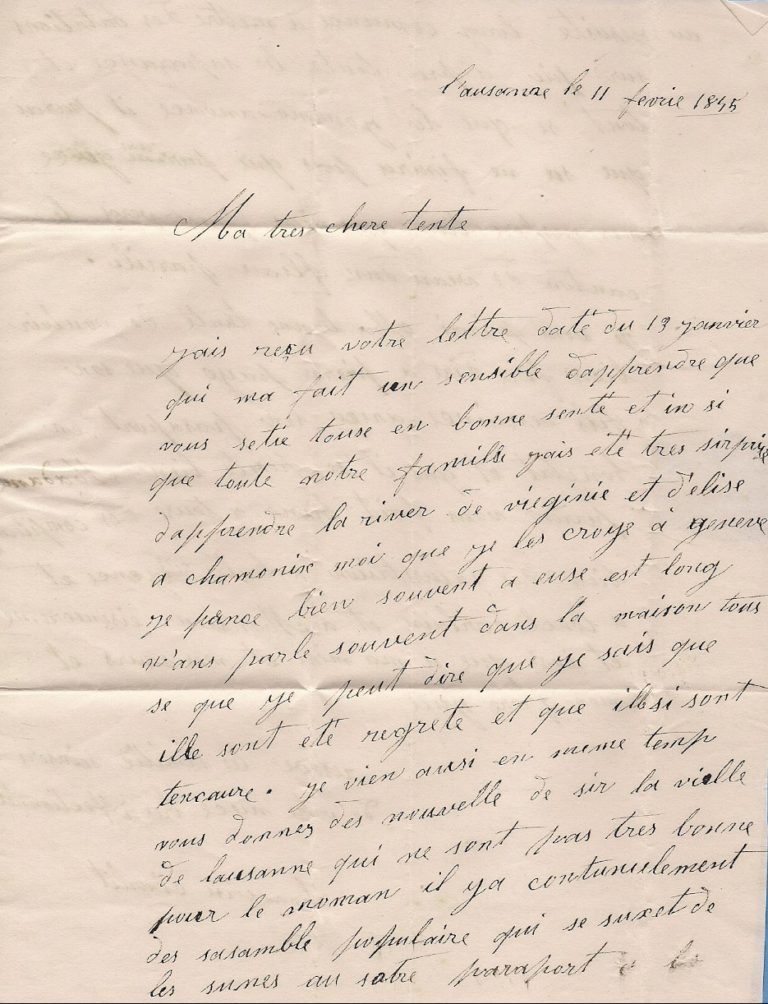 Lausanne le 11 fevrie 1845
Ma tres chere tente
jais reçu votre lettre daté du 13 janvier
qui ma fait un sensible dapprendre que
vous setie touse en bonne senté et in si
que toute notre famille jais eté tres sirprise
dapprendre la river de vieginie et d'elise
a chamonix moi que je les croye à geneve
je pance bien souvent a euse est long
n'ans parle souvent dans la maison tous
se que je peut dire que je sais que
ille sont eté regrete et que illsi sont
tencaure. je vien ausi en meme temp
vous donnez des nouvelle de sir la vielle
de lausanne qui ne sont pas tres bonne
pour le moman il ya contunulement
des sasamble populaire qui se suxet de
les sunes au sotre paraport